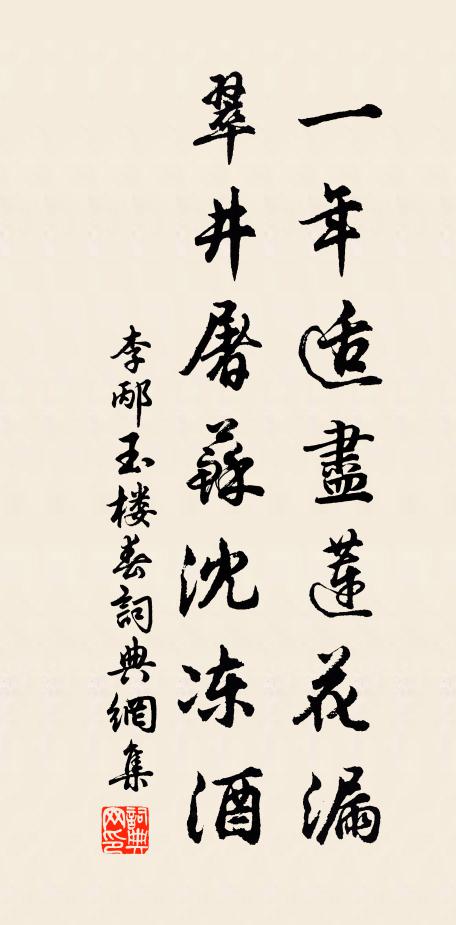 一年适盡蓮花漏
翠井屠蘇沈冻酒
李邴玉楼春詞典網集
詞典
网印